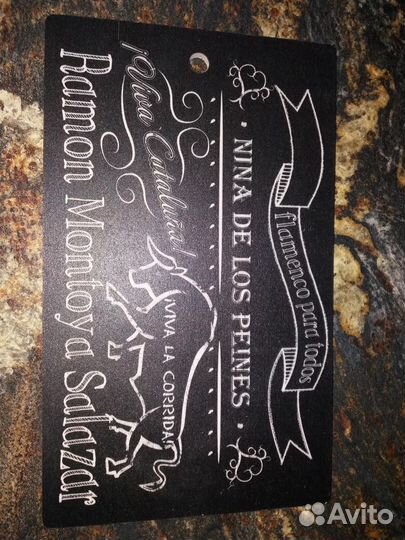 flamenco para todos
· NINA DE LOS PEINES ·
¡Viva Cataluña!
¡VIVA LA CORRIDA!
Ramon Montoya Salazar
Avito